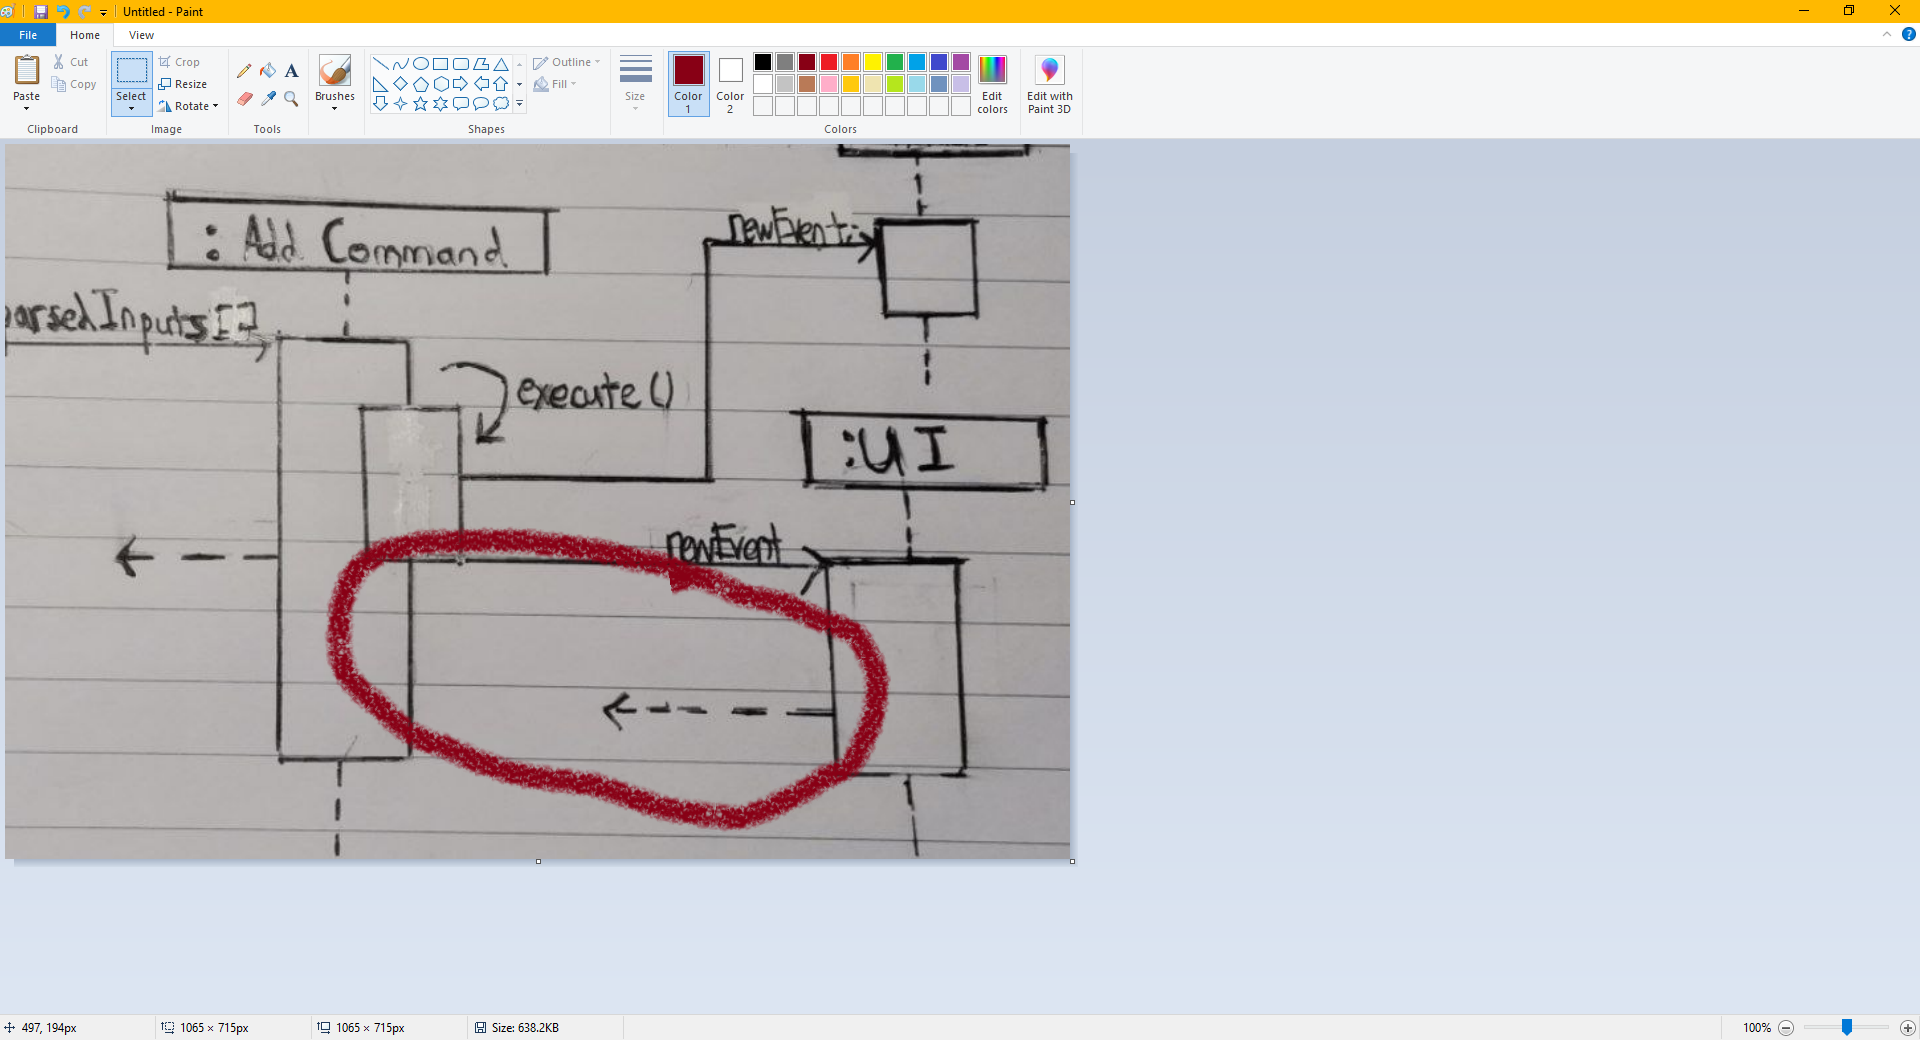 Untitled - Paint
File
Home
View
Paste
Cut
Copy
Clipboard
Select
Crop
Resize
Rotate
Image
A
Tools
Brushes
Outline
Fill
Shapes
Size
Color
1
Color
2
Edit
colors
Colors
Edit with
Paint 3D
?
: Add Command
newEvent:
parsedInputs[]
execute()
:UI
newEvent
497, 194px
1065 × 715px
1065 × 715px
Size: 638.2KB
100%